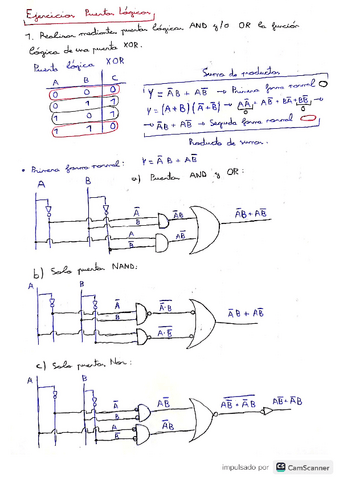 Ejercicios Puertas Lógicas
1. Realizar mediante puertas lógicas AND y/o OR la función
lógica de una puerta XOR.
Puerta lógica XOR
A B C
0 0 0
0 1 1
1 0 1
1 1 0
Suma de productos
Y = A̅B + AB̅ → Primera forma normal
Y = (A+B)(A̅+B̅) → AA̅ + AB̅ + BA̅ + BB̅ →
0 0
→ A̅B + AB̅ → Segunda forma normal
Producto de sumas.
• Primera forma normal: Y = A̅B + AB̅
a) Puertas AND y OR:
A B
A̅
B
A̅B
A
B̅
AB̅
A̅B + AB̅
b) Solo puertas NAND:
A B
A̅
B
A
B̅
A̅B + AB̅
c) Solo puertas Nor:
A B
impulsado por CS CamScanner